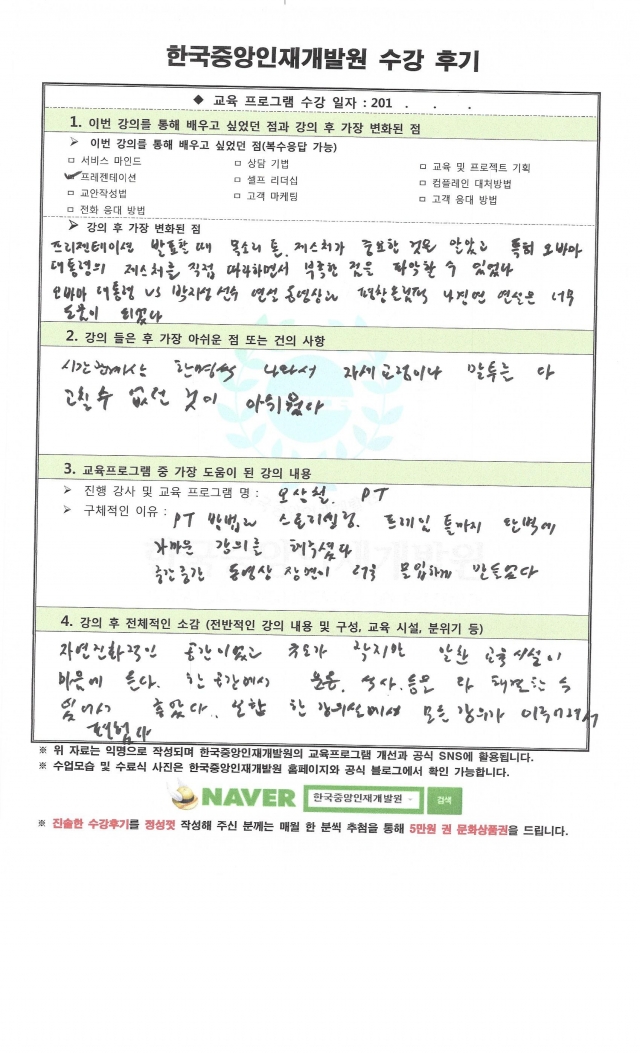 한국중앙인재개발원 수강 후기
◆ 교육 프로그램 수강 일자 : 201 . . .
1. 이번 강의를 통해 배우고 싶었던 점과 강의 후 가장 변화된 점
➤ 이번 강의를 통해 배우고 싶었던 점(복수응답 가능)
□ 서비스 마인드 □ 상담 기법 □ 교육 및 프로젝트 기획
□ 프레젠테이션 □ 셀프 리더십 □ 컴플레인 대처방법
□ 교안작성법 □ 고객 마케팅 □ 고객 응대 방법
□ 전화 응대 방법
➤ 강의 후 가장 변화된 점
프리젠테이션 발표할 때 목소리 톤, 제스처가 중요한 것을 알았고 특히 오바마
대통령의 제스처를 직접 따라하면서 부족한 점을 파악할 수 있었다
오바마 대통령 VS 박지성 선수 연설 동영상과 평창올림픽 나경연 연설은 너무
도움이 되었다
2. 강의 들은 후 가장 아쉬운 점 또는 건의 사항
시간관계상 한명씩 나와서 자세교정이나 말투를 다
고칠 수 없던 것이 아쉬웠다
3. 교육프로그램 중 가장 도움이 된 강의 내용
➤ 진행 강사 및 교육 프로그램 명 : 오상철. PT
➤ 구체적인 이유 : PT 방법과 스토리텔링, 프레임 틀까지 완벽에
가까운 강의를 해주셨다
중간중간 동영상 장면이 더욱 몰입하게 만들었다
4. 강의 후 전체적인 소감 (전반적인 강의 내용 및 구성, 교육 시설, 분위기 등)
자연친화적인 공간이었고 규모가 작지만 알찬 교육시설이
마음에 든다. 한 공간에서 운동, 식사, 등을 다 해결할 수
있어서 좋았다. 또한 한 강의실에서 모든 강의가 이루어져서
편했다
※ 위 자료는 익명으로 작성되며 한국중앙인재개발원의 교육프로그램 개선과 공식 SNS에 활용됩니다.
※ 수업모습 및 수료식 사진은 한국중앙인재개발원 홈페이지와 공식 블로그에서 확인 가능합니다.
NAVER 한국중앙인재개발원 검색
※ 진솔한 수강후기를 정성껏 작성해 주신 분께는 매월 한 분씩 추첨을 통해 5만원 권 문화상품권을 드립니다.